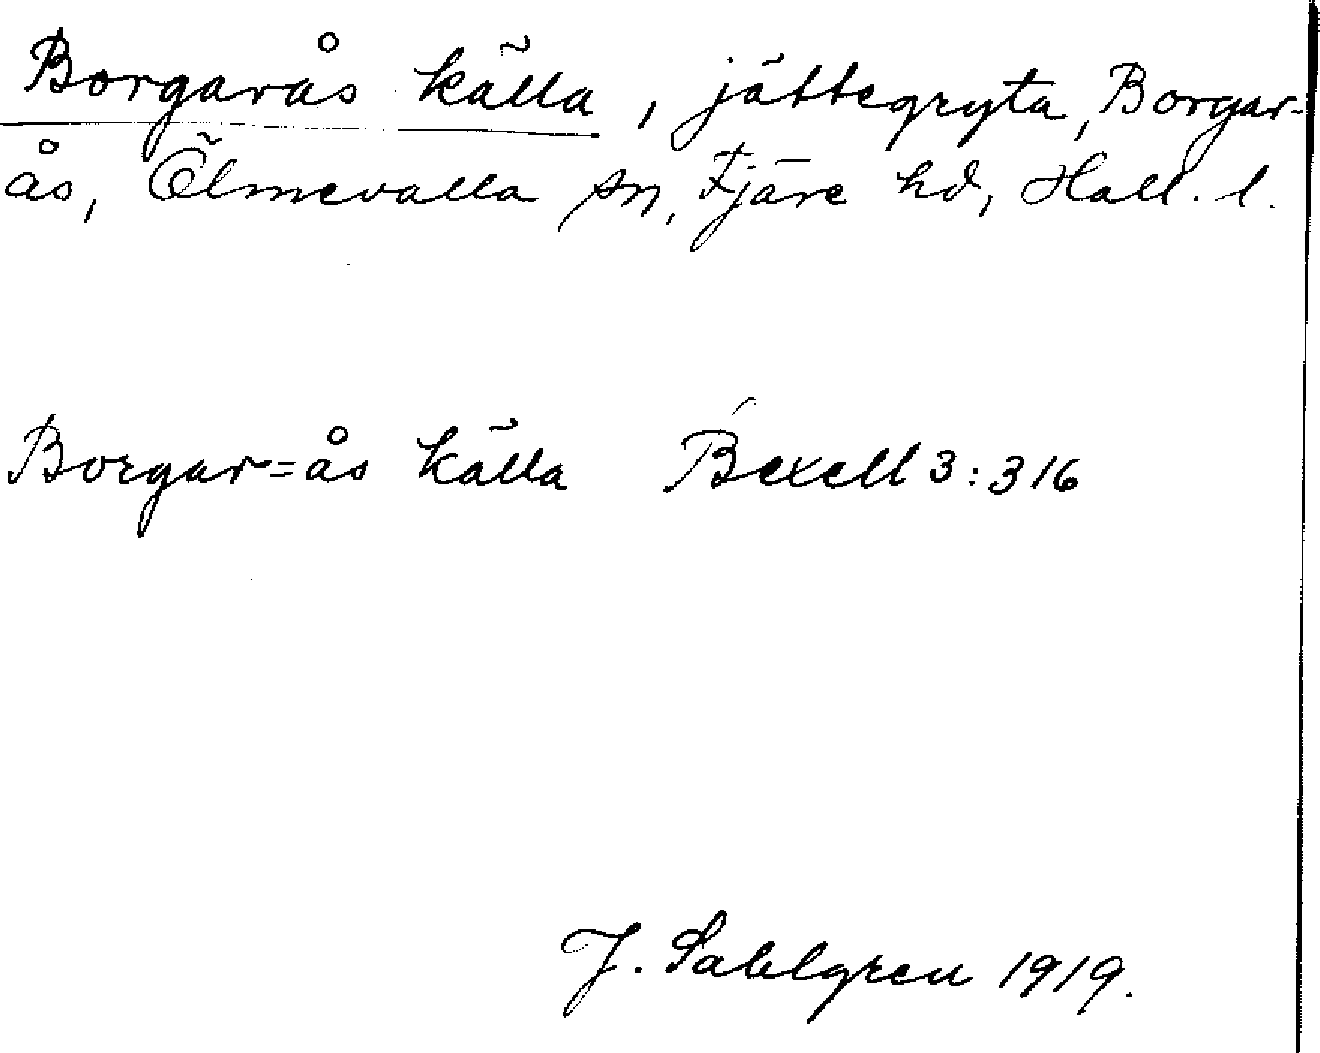 Borgarås källa, jättegryta, Borgar-
ås, Ölmevalla sn, Fjäre hd, Hall. l.
Borgar=ås källa Bexell 3:316
J. Sahlgren 1919.